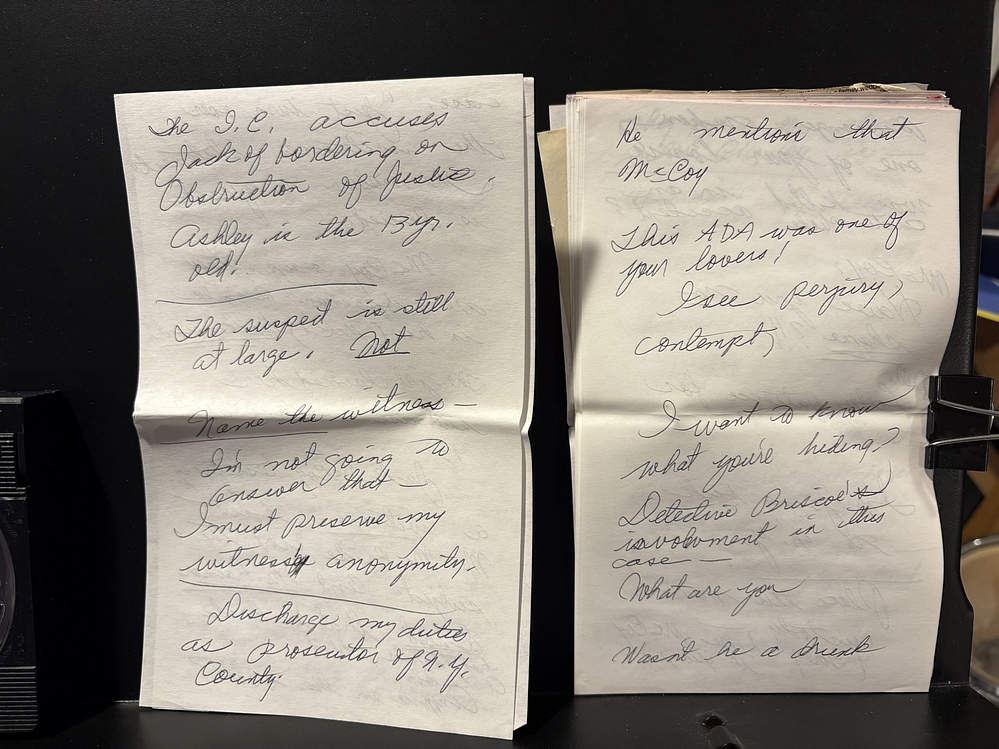 The I.C. accuses
Jack of bordering on
Obstruction of Justice.
Ashley is the 13 yr.
old.
The suspect is still
at large. Not
Name the witness —
I'm not going to
answer that —
I must preserve my
witness anonymity.
Discharge my duties
as prosecutor of N.Y.
County.
He mentions that
McCoy
This ADA was one of
your lovers!
I see perjury,
contempt,
I want to know
what you're hiding?
Detective Briscoe's
involvment in this
case —
What are you
Wasn't he a drunk